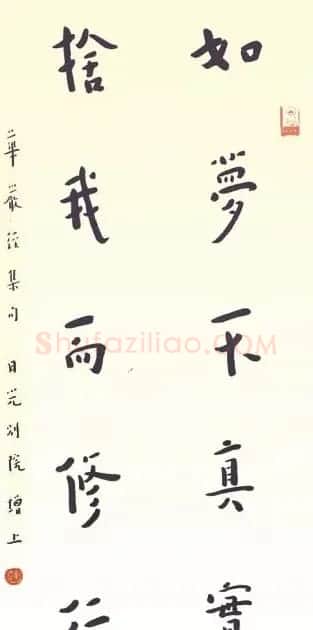 如夢不真實
捨我而修行
華嚴經集句 日光別院 增上
Shufaziliao.com